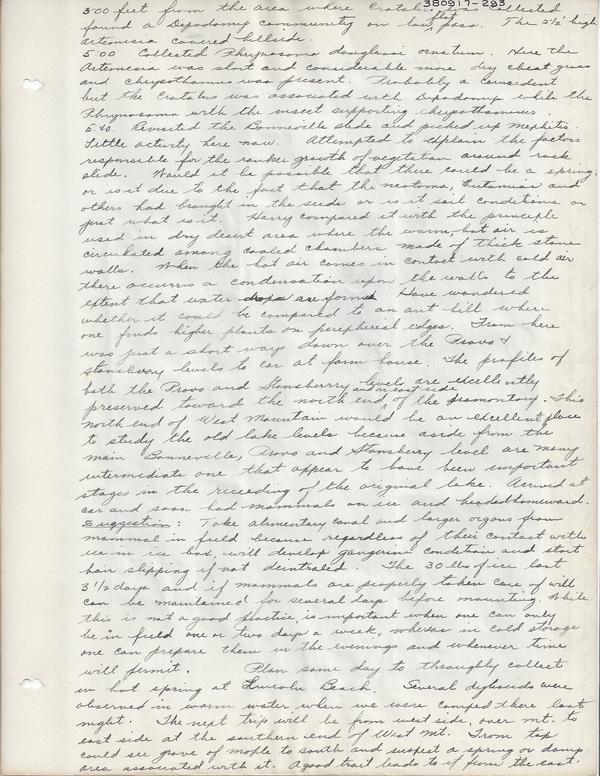 380917-283
300 feet from the area where Crotalus was collected
found a Dipodomy community on low flat pass. The 2½' high
Artemesia covered hillside.
5:00 Collected Phrynosoma douglassi ornatum. Here the
Artemesia was short and considerable more dry cheat grass
and chrysothamus was present. Probably a consident
but the Crotalus was associated with Dipodomy while the
Phrynosoma with the insect supporting chrysothamnus.
5:40. Revisited the Bonneville slide and picked up Mephitis.
Little activity here now. Attempted to explain the factors
responsible for the ranker growth of vegetation around rock
slide. Would it be possible that there could be a spring,
or is it due to the fact that the neotoma, Eutamias and
others had brought in the seeds or is it soil conditions or
just what is it. Harry compared it with the principle
used in dry desert area where the warm, hot air is
circulated among cooled chambers made of thick stone
walls. When the hot air comes in contact with cold air
there occurrs a condensation upon the walls to the
extent that water drops are formed. Have wondered
whether it could be compared to an ant hill where
one finds higher plants on peripherial edges. From here
was just a short ways down over the Provo &
Stansbury levels to car at farm house. The profiles of
both the Provo and Stansberry levels are excellently
preserved toward the north end, on east side of the promontory. This
north end of West Mountain would be an excellent place
to study the old lake levels because aside from the
main Bonneville, Provo and Stansbury level are many
intermediate one that appear to have been important
stages in the receeding of the original lake. Arrived at
car and soon had mammals on ice and headed homeward.
Suggestion: Take alimentary canal and larger organs from
mammal in field because regardless of their contact with
ice in ice box, will develop gangerine condition and start
hair slipping if not deintraled. The 30 lbs of ice last
3½ days and if mammals are properly taken care of will
can be maintained for several days before mounting. While
this is not a good practice, is important when one can only
be in field one or two days a week, whereas in cold storage
one can prepare them in the evenings and whenever time
will permit. Plan some day to throughly collect
in hot spring at Lincoln Beach. Several dytiscids were
observed in warm water when we were camped there last
night. The next trip will be from west side, over mt. to
east side at the southern end of West Mt. From top
could see grove of maple to south and suspect a spring or damp
area associated with it. A good trail leads to it from the east.